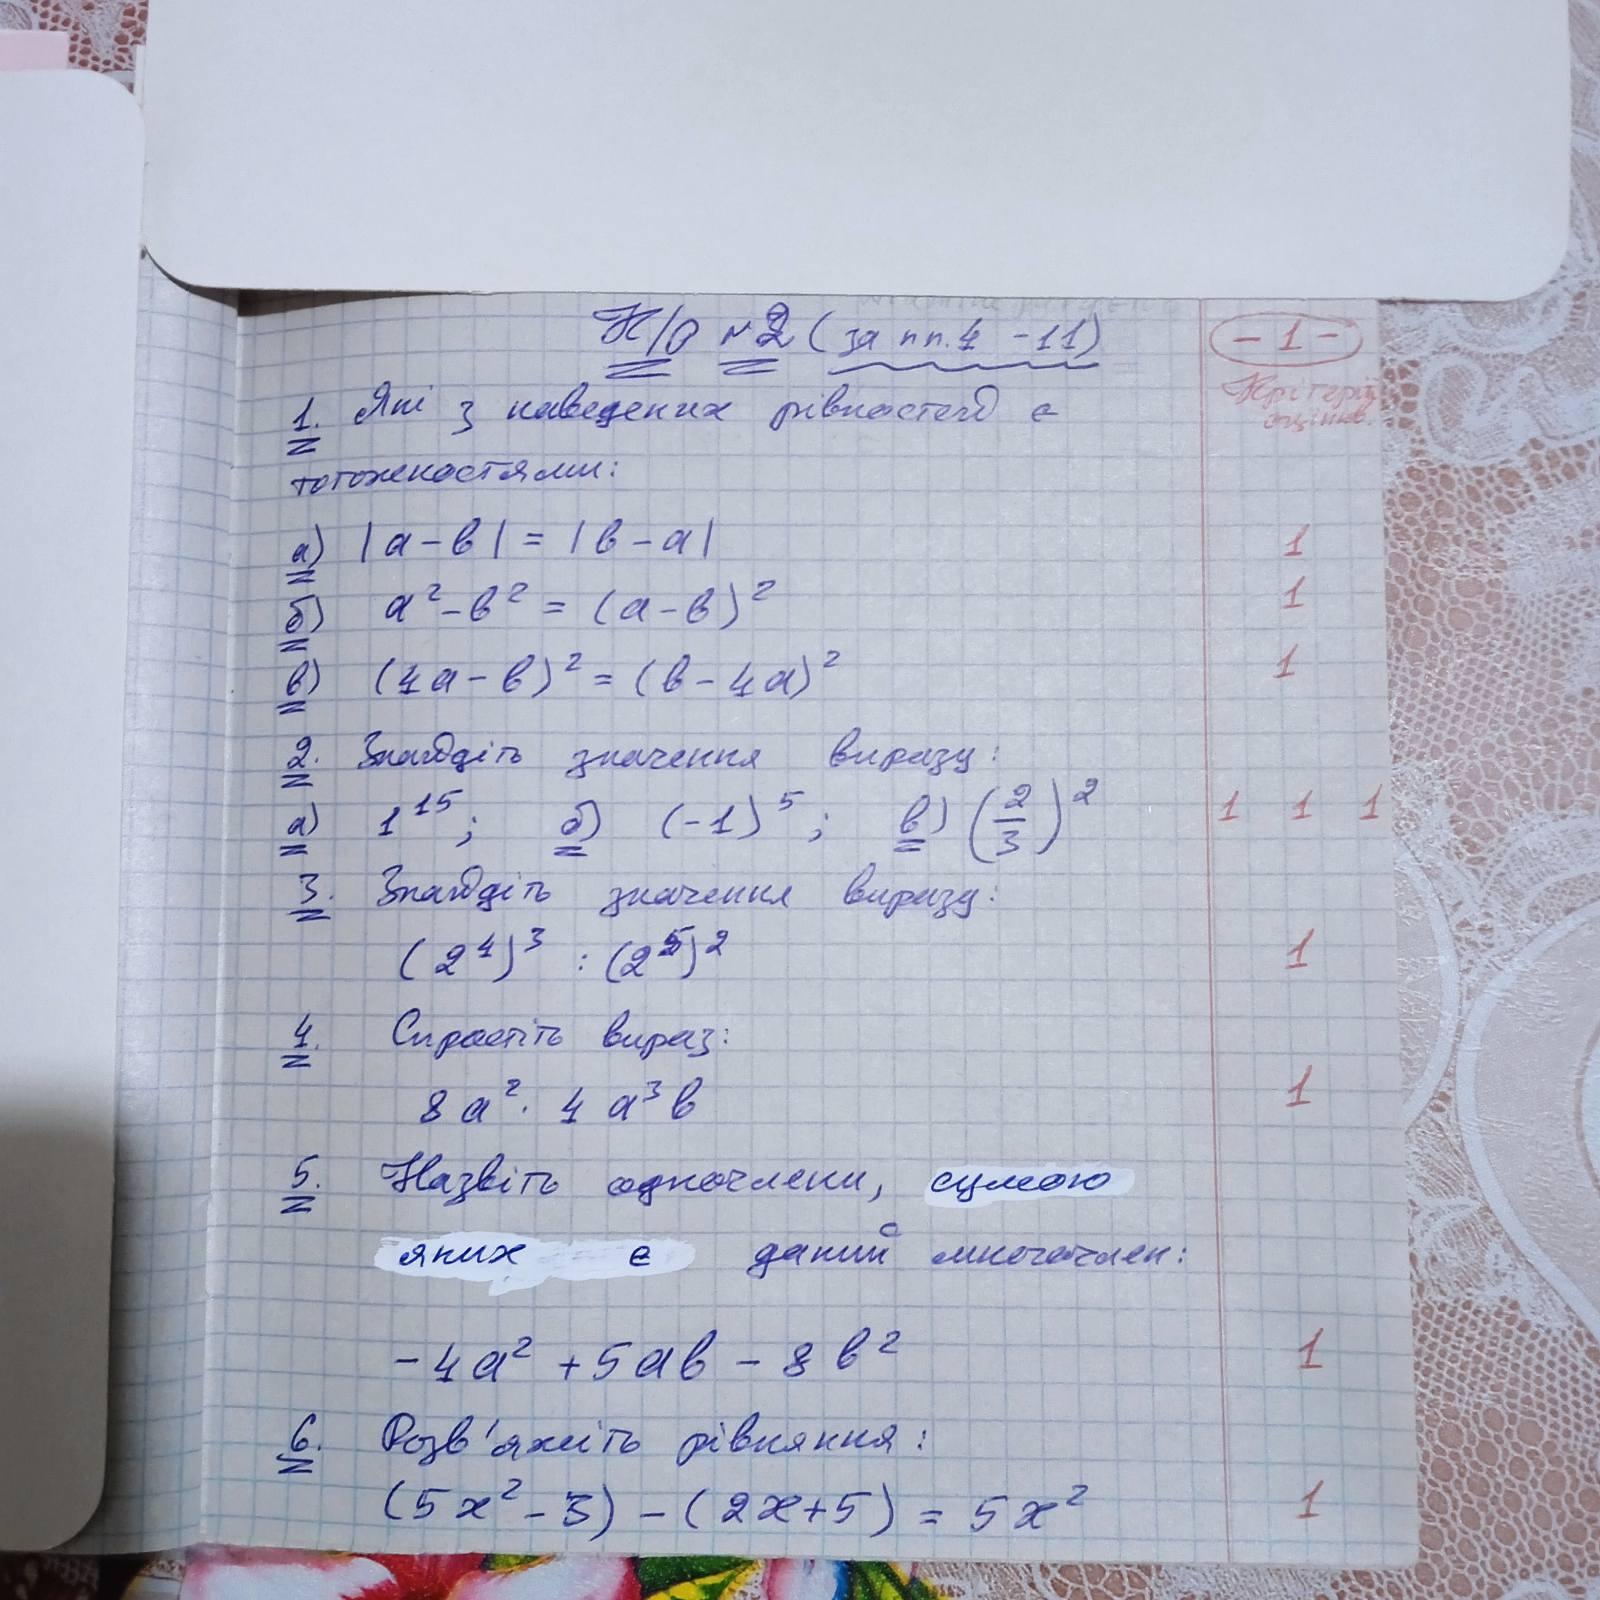 К/Р №2 (за пп. 4 - 11)
- 1 -
Крітерії
оцінюв.
1. Які з наведених рівностей є
тотожностями:
а) |a - b| = |b - a| 1
б) a² - b² = (a - b)² 1
в) (4a - b)² = (b - 4a)² 1
2. Знайдіть значення виразу:
а) 1¹⁵; б) (-1)⁵; в) (2/3)² 1 1 1
3. Знайдіть значення виразу:
(2⁴)³ : (2⁵)² 1
4. Спростіть вираз:
8a² · 4a³b 1
5. Назвіть одночлени, сумою
яких є даний многочлен:
-4a² + 5ab - 8b² 1
6. Розв'яжіть рівняння:
(5x² - 3) - (2x + 5) = 5x² 1